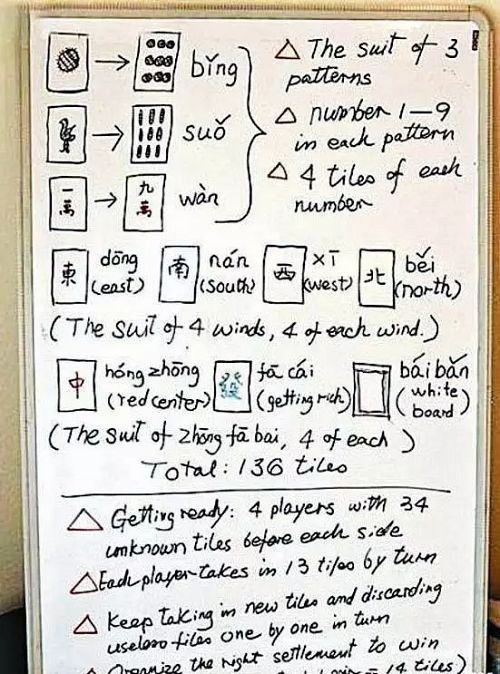 bǐng
suǒ
一萬 九萬 wàn
△ The suit of 3
patterns
△ number 1—9
in each pattern
△ 4 tiles of each
number
東 dōng 南 nán 西 xī 北 běi
(east) (south) (west) (north)
(The suit of 4 winds, 4 of each wind.)
中 hóng zhōng 發 fā cái bái bǎn
(red center) (getting rich) (white
board)
(The suit of zhōng fā bai, 4 of each)
Total: 136 tiles
△ Getting ready: 4 players with 34
unknown tiles before each side
△ Each player takes in 13 tiles by turn
△ Keep taking in new tiles and discarding
useless tiles one by one in turn
△ Organize the right settlement to win
= 14 tiles)